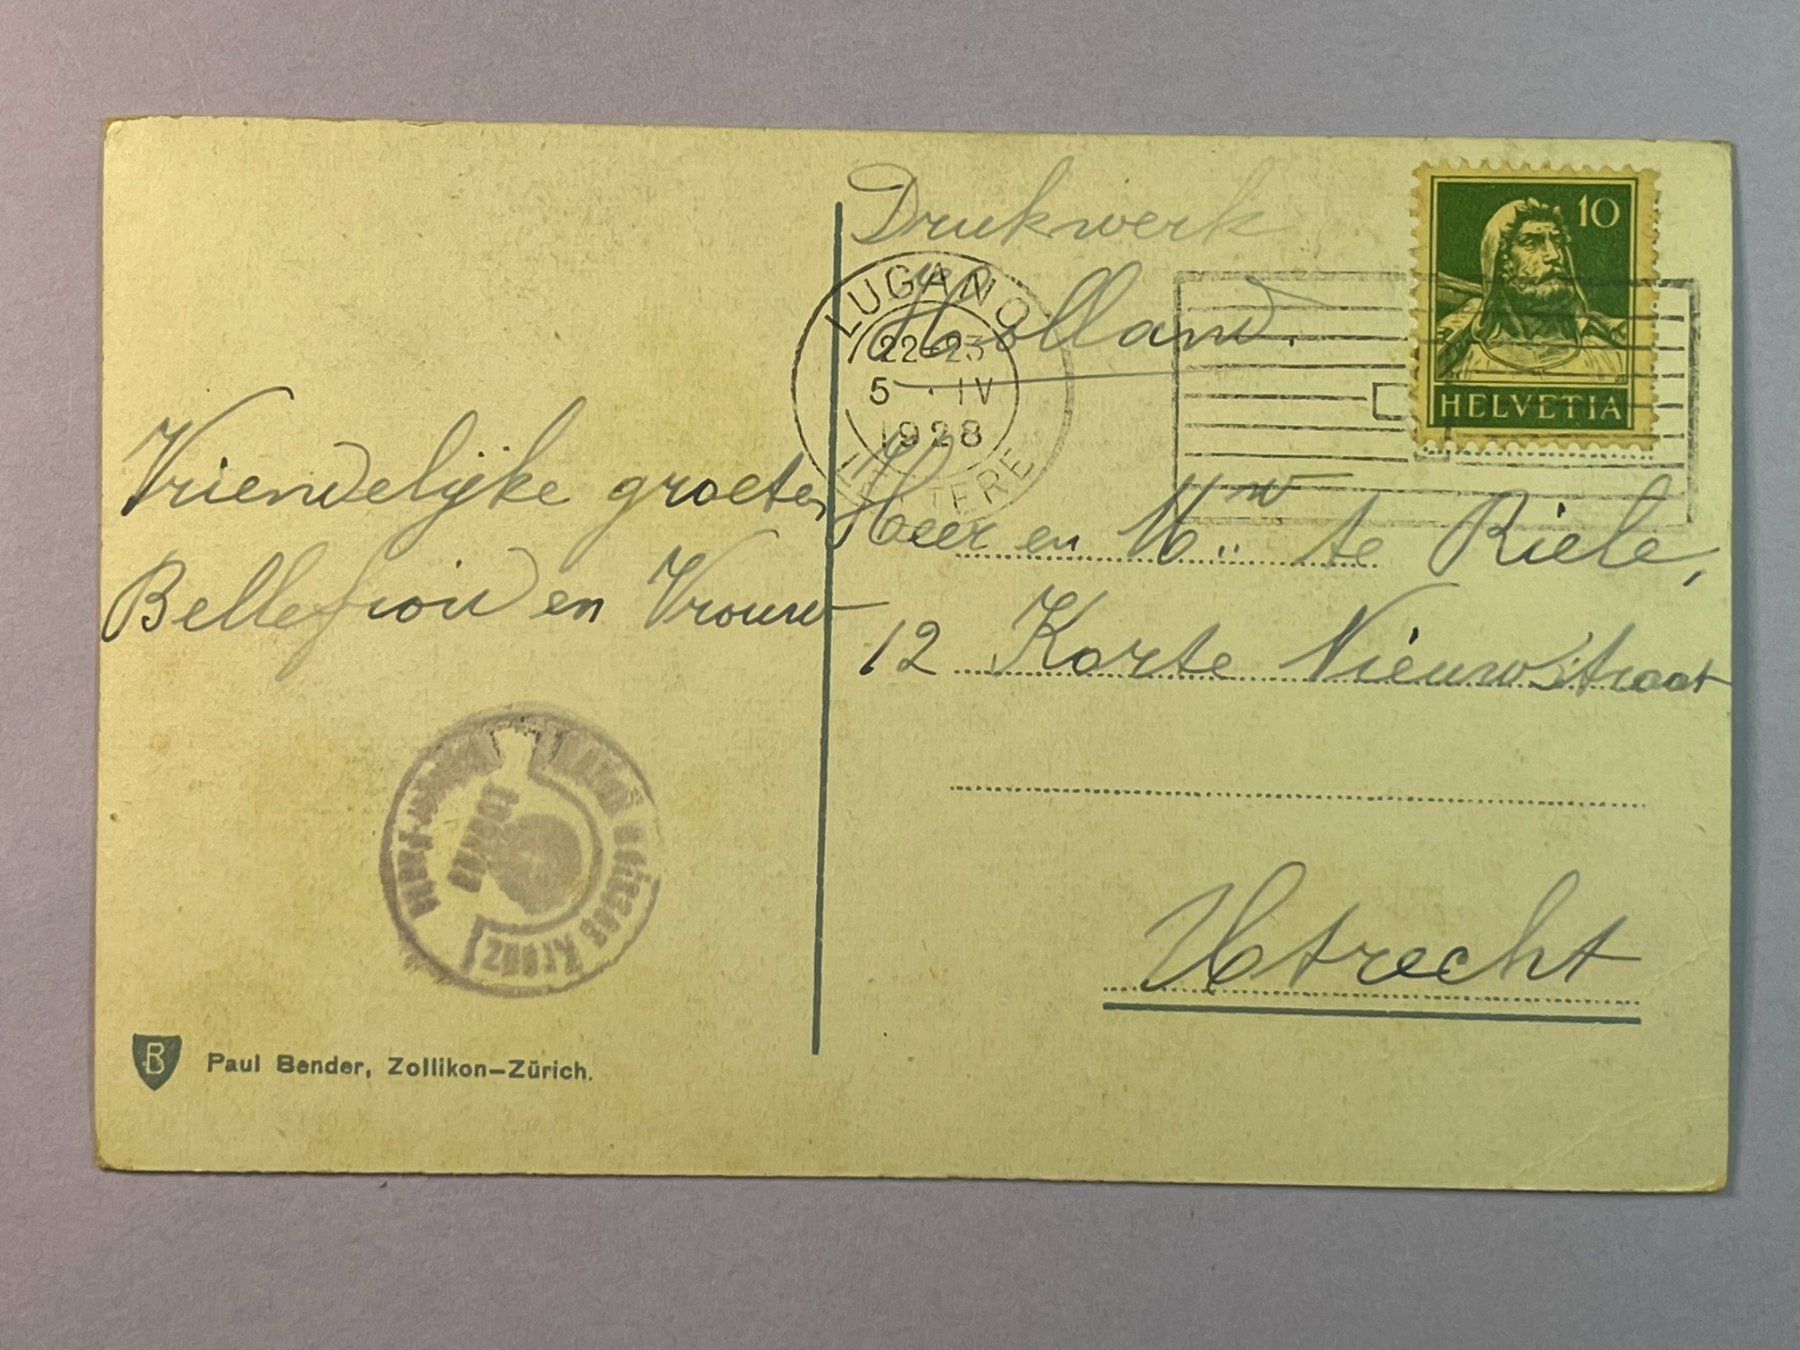 Drukwerk
Holland.
10
HELVETIA
LUGANO
22-23
5 . IV
1928
LETTERE
Vriendelijke groeten
Bellefroid en Vrouw
Heer en Mw te Riele,
12 Korte Nieuwstraat
Utrecht
B Paul Bender, Zollikon-Zürich.